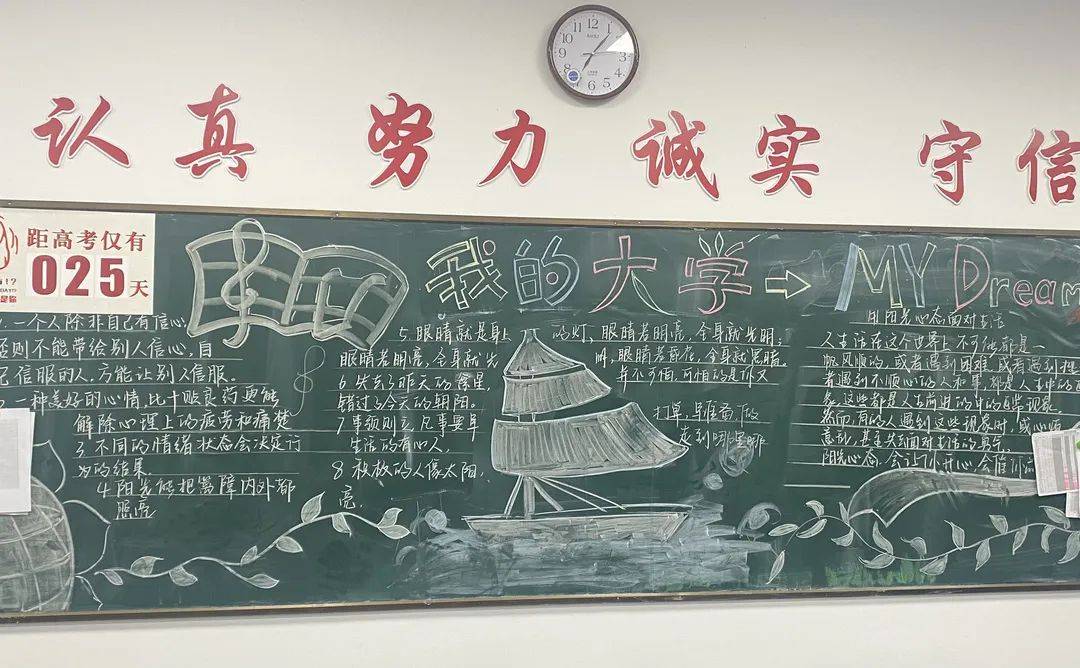 认真 努力 诚实 守信
距高考仅有
025天
我的大学→MY Dream
一个人除非自己有信心
否则不能带给别人信心，自
己信服的人，方能让别人信服。
一种美好的心情，比十贴良药更能
解除心理上的疲劳和痛楚
3. 不同的情绪状态会决定行
为的结果
4.阳光能把篱障内外都
照亮
5.眼睛就是身上
眼睛若明亮，全身就光
6.失去了昨天的
错过今天的朝阳。
7事预则立，凡事要早
生活的有心人，
8.
亮，
的灯，眼睛若明亮，全身就光明，
叫，眼睛若昏花，全身就黑暗，
并不可怕，可怕的是你又
打算，
走到哪里哪
阳光心态面对生活
人生活在这个世界上不可能都是一
帆风顺的，或者遇到困难，或者遇到挫
者遇到不顺心的人和事，都是人生中的
这些都是人生前进的中的正常现象
然而有的人遇到这些现象时，或心烦
意乱，甚至失去面对生活的勇气
阳光心态，会让你开心，会催你